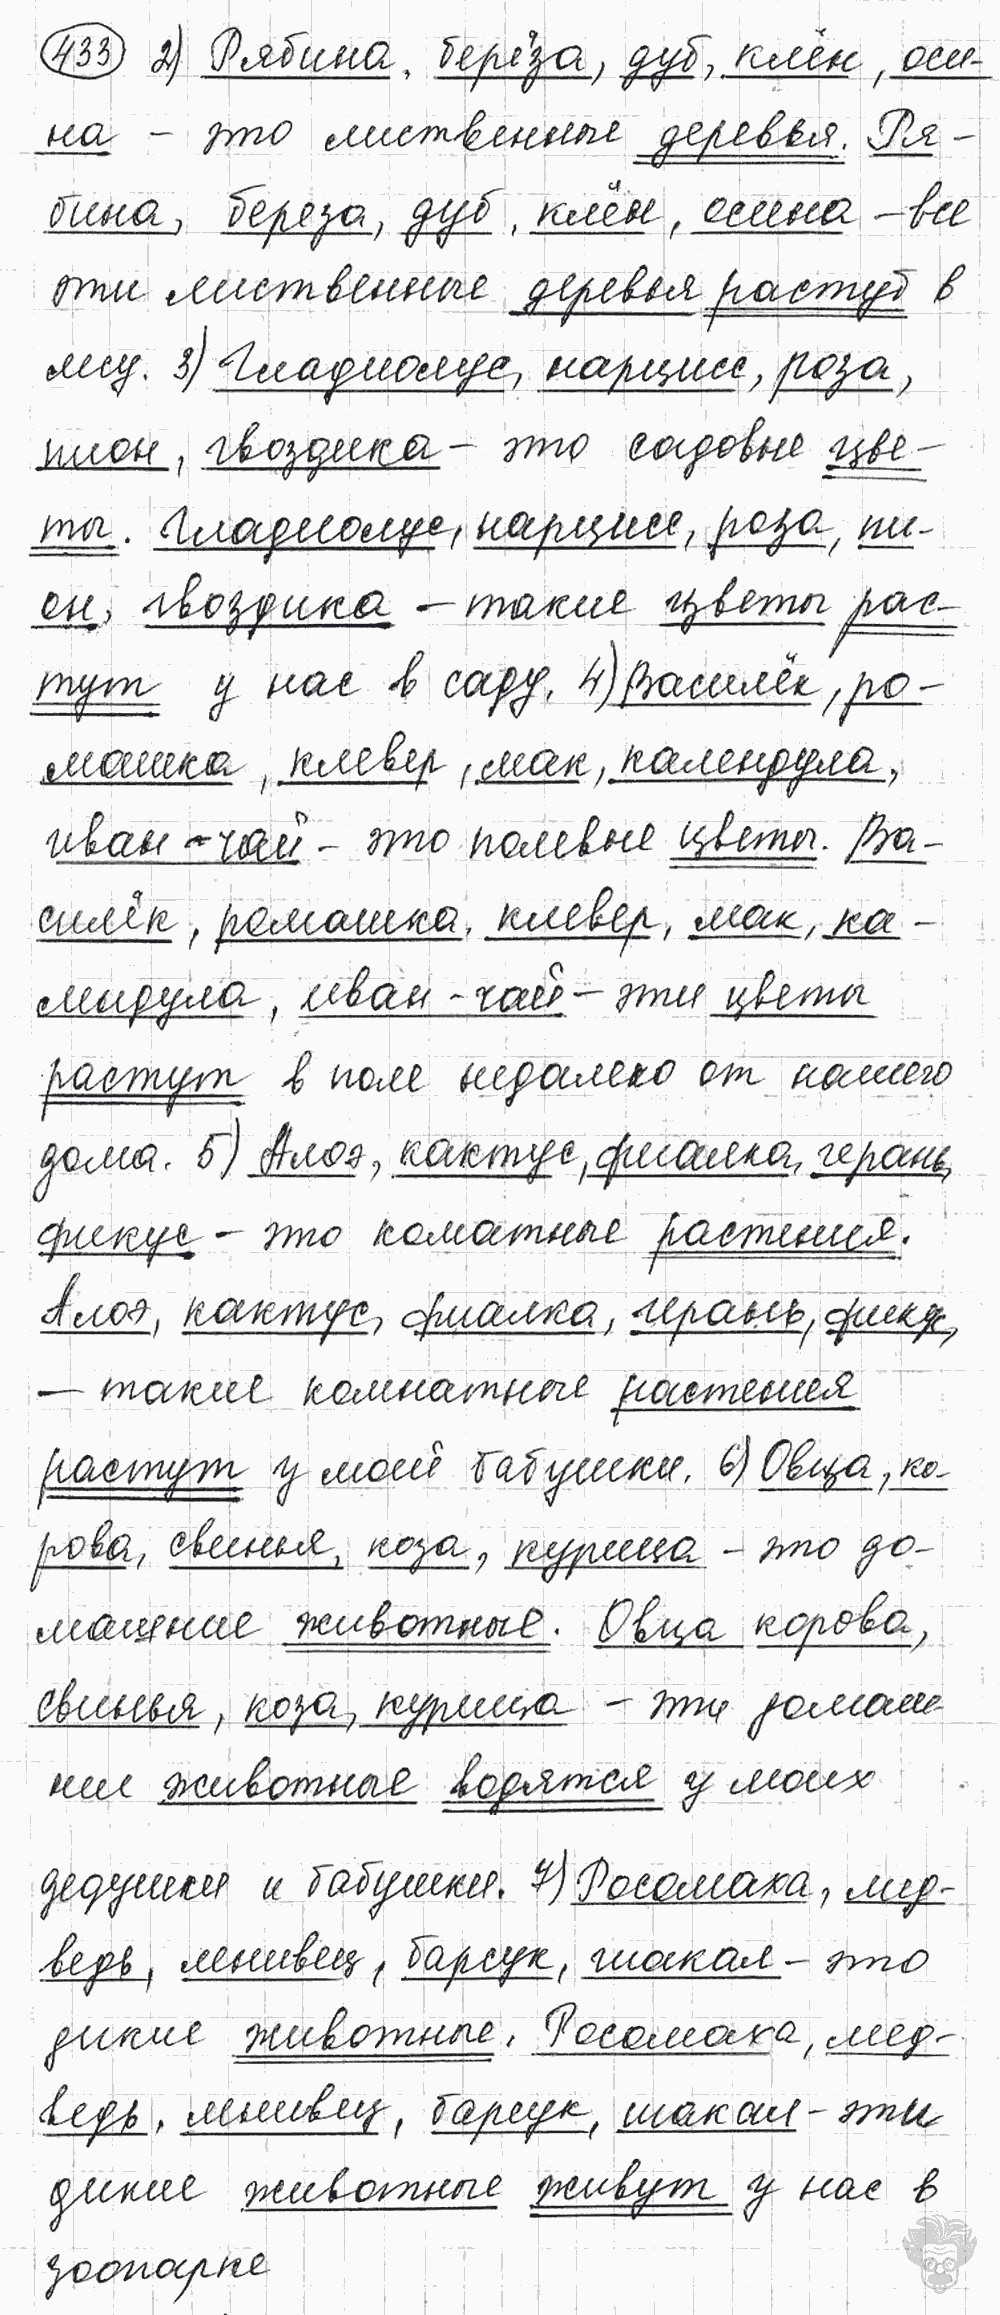 433 2) Рябина, берёза, дуб, клён, оси-
на – это лиственные деревья. Ря-
бина, береза, дуб, клён, осина – все
эти лиственные деревья растут в
лесу. 3) Гладиолус, нарцисс, роза,
пион, гвоздика – это садовые цве-
ты. Гладиолус, нарцисс, роза, пи-
он, гвоздика – такие цветы рас-
тут у нас в саду. 4) Василёк, ро-
машка, клевер, мак, календула,
иван-чай – это полевые цветы. Ва-
силёк, ромашка, клевер, мак, ка-
лендула, иван-чай – эти цветы
растут в поле недалеко от нашего
дома. 5) Алоэ, кактус, фиалка, герань,
фикус – это коматные растения.
Алоэ, кактус, фиалка, герань, фикус,
– такие комнатные растения
растут у моей бабушки. 6) Овца, ко-
рова, свинья, коза, курица – это до-
машние животные. Овца корова,
свинья, коза, курица – эти домаш-
ние животные водятся у моих
дедушки и бабушки. 7) Росомаха, мед-
ведь, ленивец, барсук, шакал – это
дикие животные. Росомаха, мед-
ведь, ленивец, барсук, шакал – эти
дикие животные живут у нас в
зоопарке